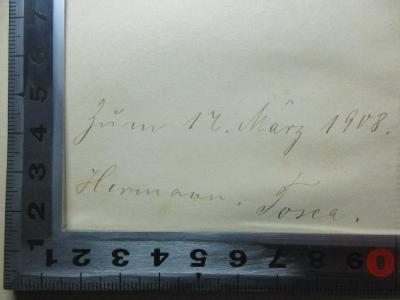 Zum 17. März 1908.
Hermann. Tosca.
7
6
5
4
3
2
1
2 1 2 3 4 5 6 7 8 9 0